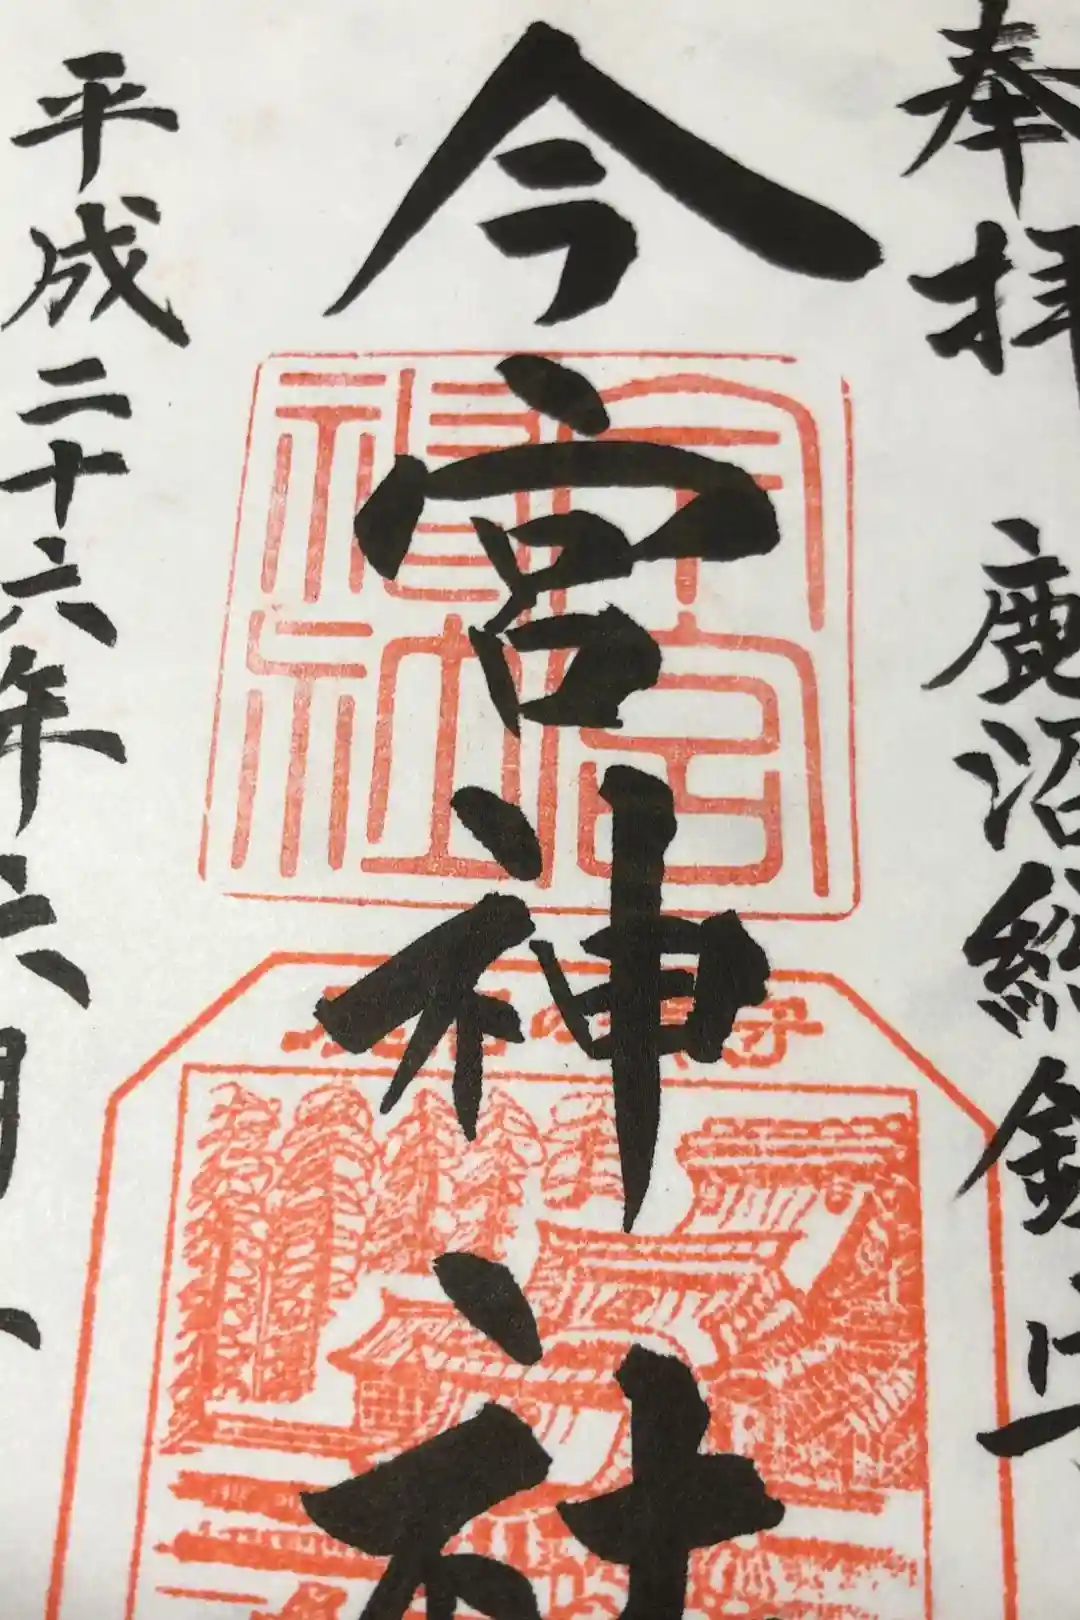 奉拝
鹿沼総鎮守
今宮神社
今宮
神社
平成二十六年六月